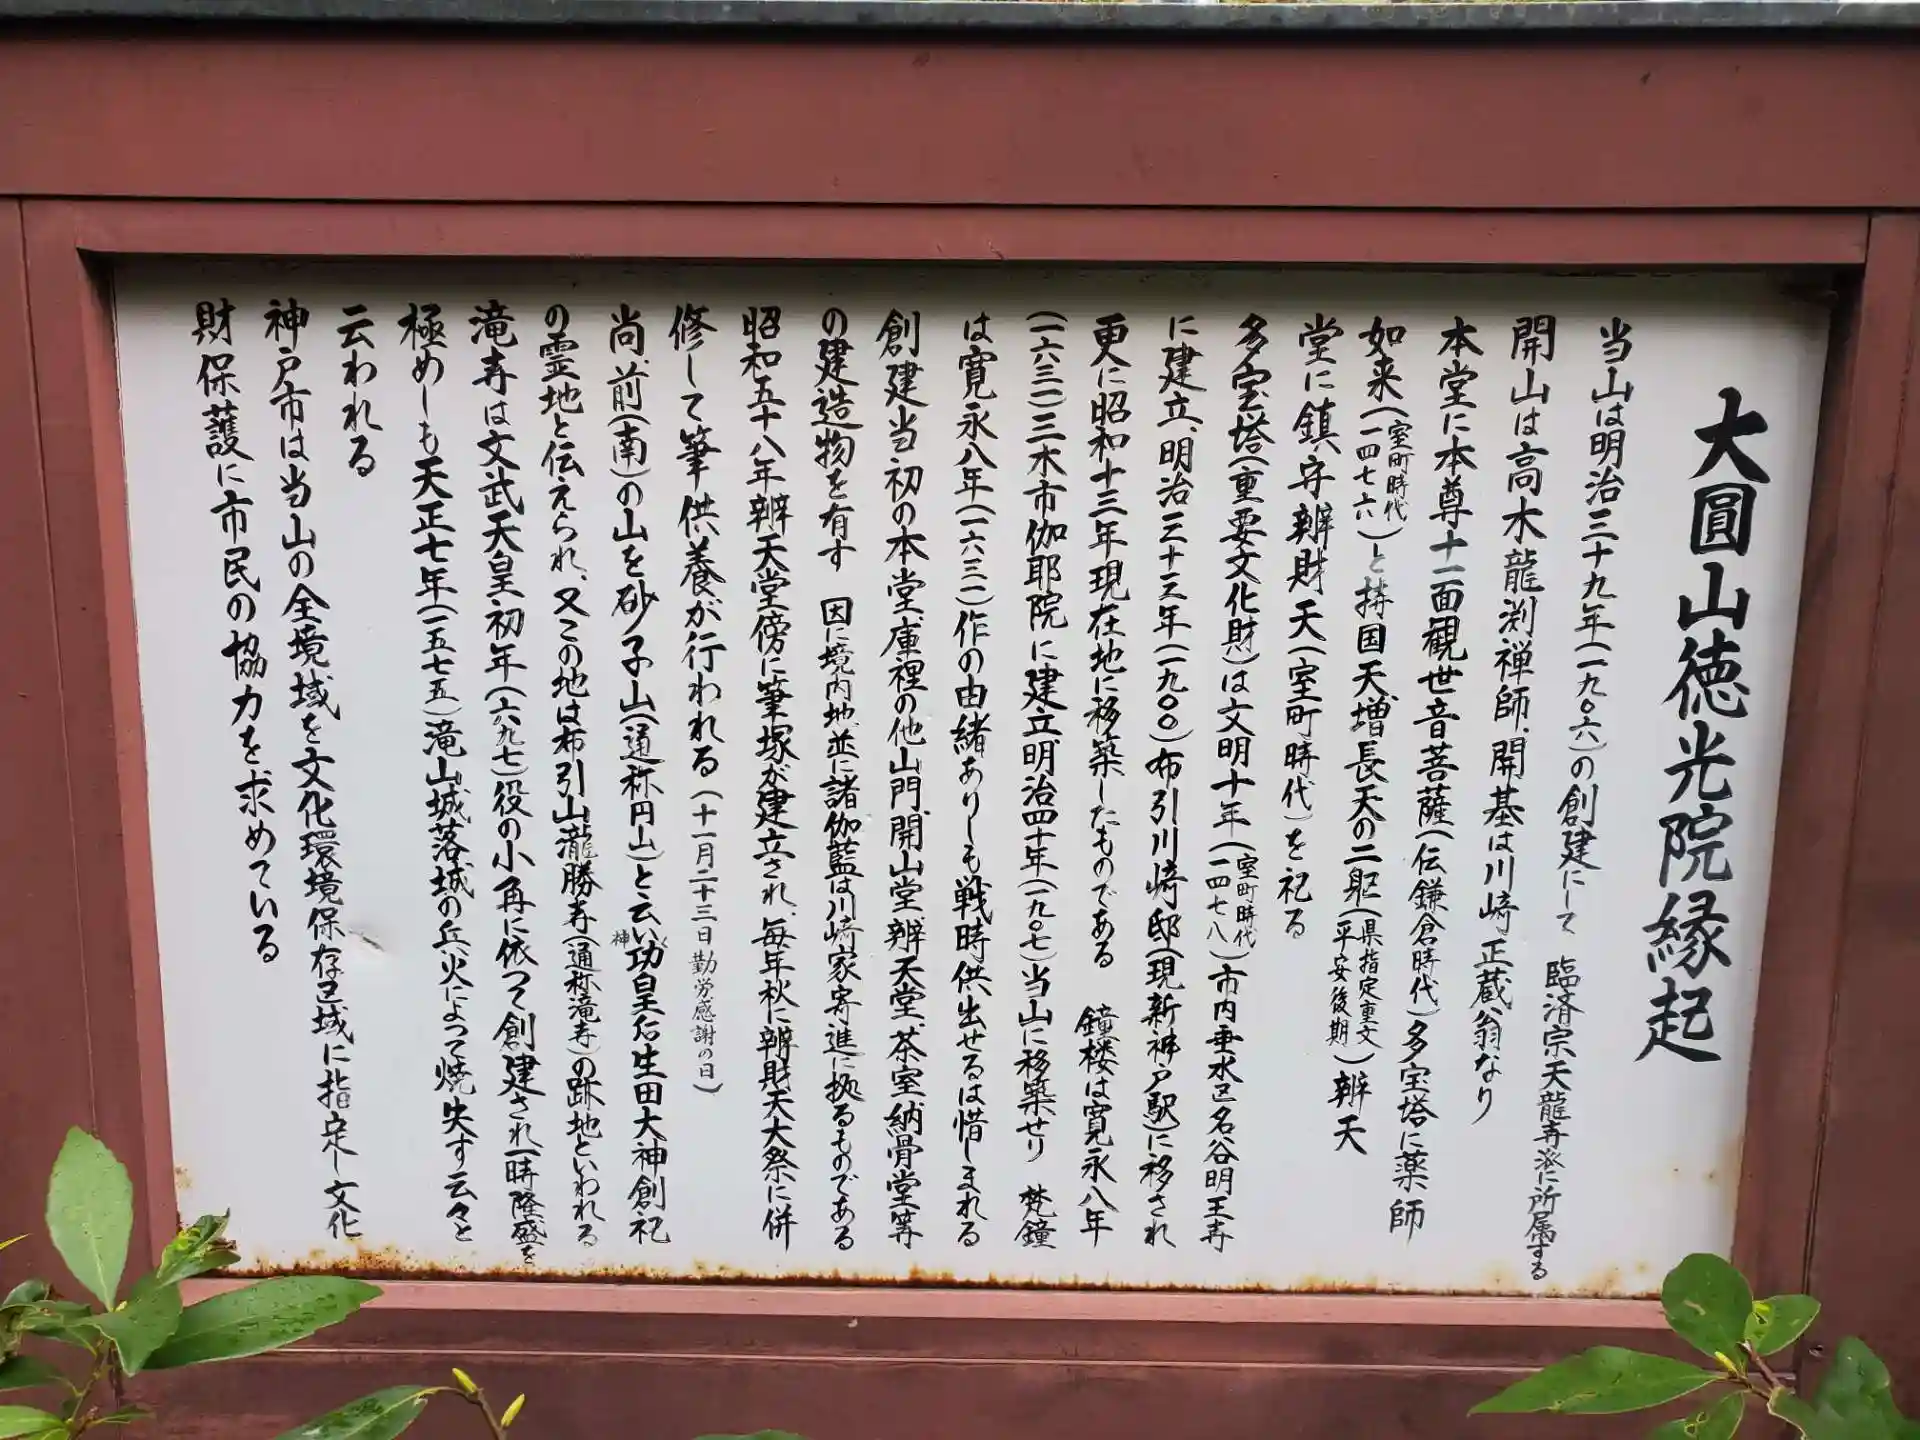 大圓山徳光院縁起
当山は明治三十九年(一九〇六)の創建にして 臨済宗天龍寺派に所属する
開山は高木龍渕禅師、開基は川崎正蔵翁なり
本堂に本尊十一面観世音菩薩(伝鎌倉時代)多宝塔に薬師
如来(室町時代一四七六)と持国天増長天の二躯(県指定重文平安後期)辨天
堂に鎮守辨財天(室町時代)を祀る
多宝塔(重要文化財)は文明十年(室町時代一四七八)市内垂水区名谷明王寺
に建立、明治三十三年(一九〇〇)布引川崎邸(現新神戸駅)に移され
更に昭和十三年現在地に移築したものである 鐘楼は寛永八年
(一六三一)三木市伽耶院に建立明治四十年(一九〇七)当山に移築せり 梵鐘
は寛永八年(一六三一)作の由緒ありしも戦時供出せるは惜しまれる
創建当初の本堂、庫裡の他山門、開山堂、辨天堂、茶室、納骨堂等
の建造物を有す 因に境内地、並に諸伽藍は川崎家寄進に拠るものである
昭和五十八年辨天堂傍に筆塚が建立され、毎年秋に辨財天大祭に併
修して筆供養が行われる(十一月二十三日勤労感謝の日)
尚、前(南)の山を砂子山(通称円山)と云い神功皇后生田大神創祀
の霊地と伝えられ、又この地は布引山瀧勝寺(通称滝寺)の跡地といわれる
滝寺は文武天皇初年(六九七)役の小角に依つて創建され一時隆盛を
極めしも天正七年(一五七五)滝山城落城の兵火によって焼失す云々と
云われる
神戸市は当山の全境域を文化環境保存区域に指定し文化
財保護に市民の協力を求めている